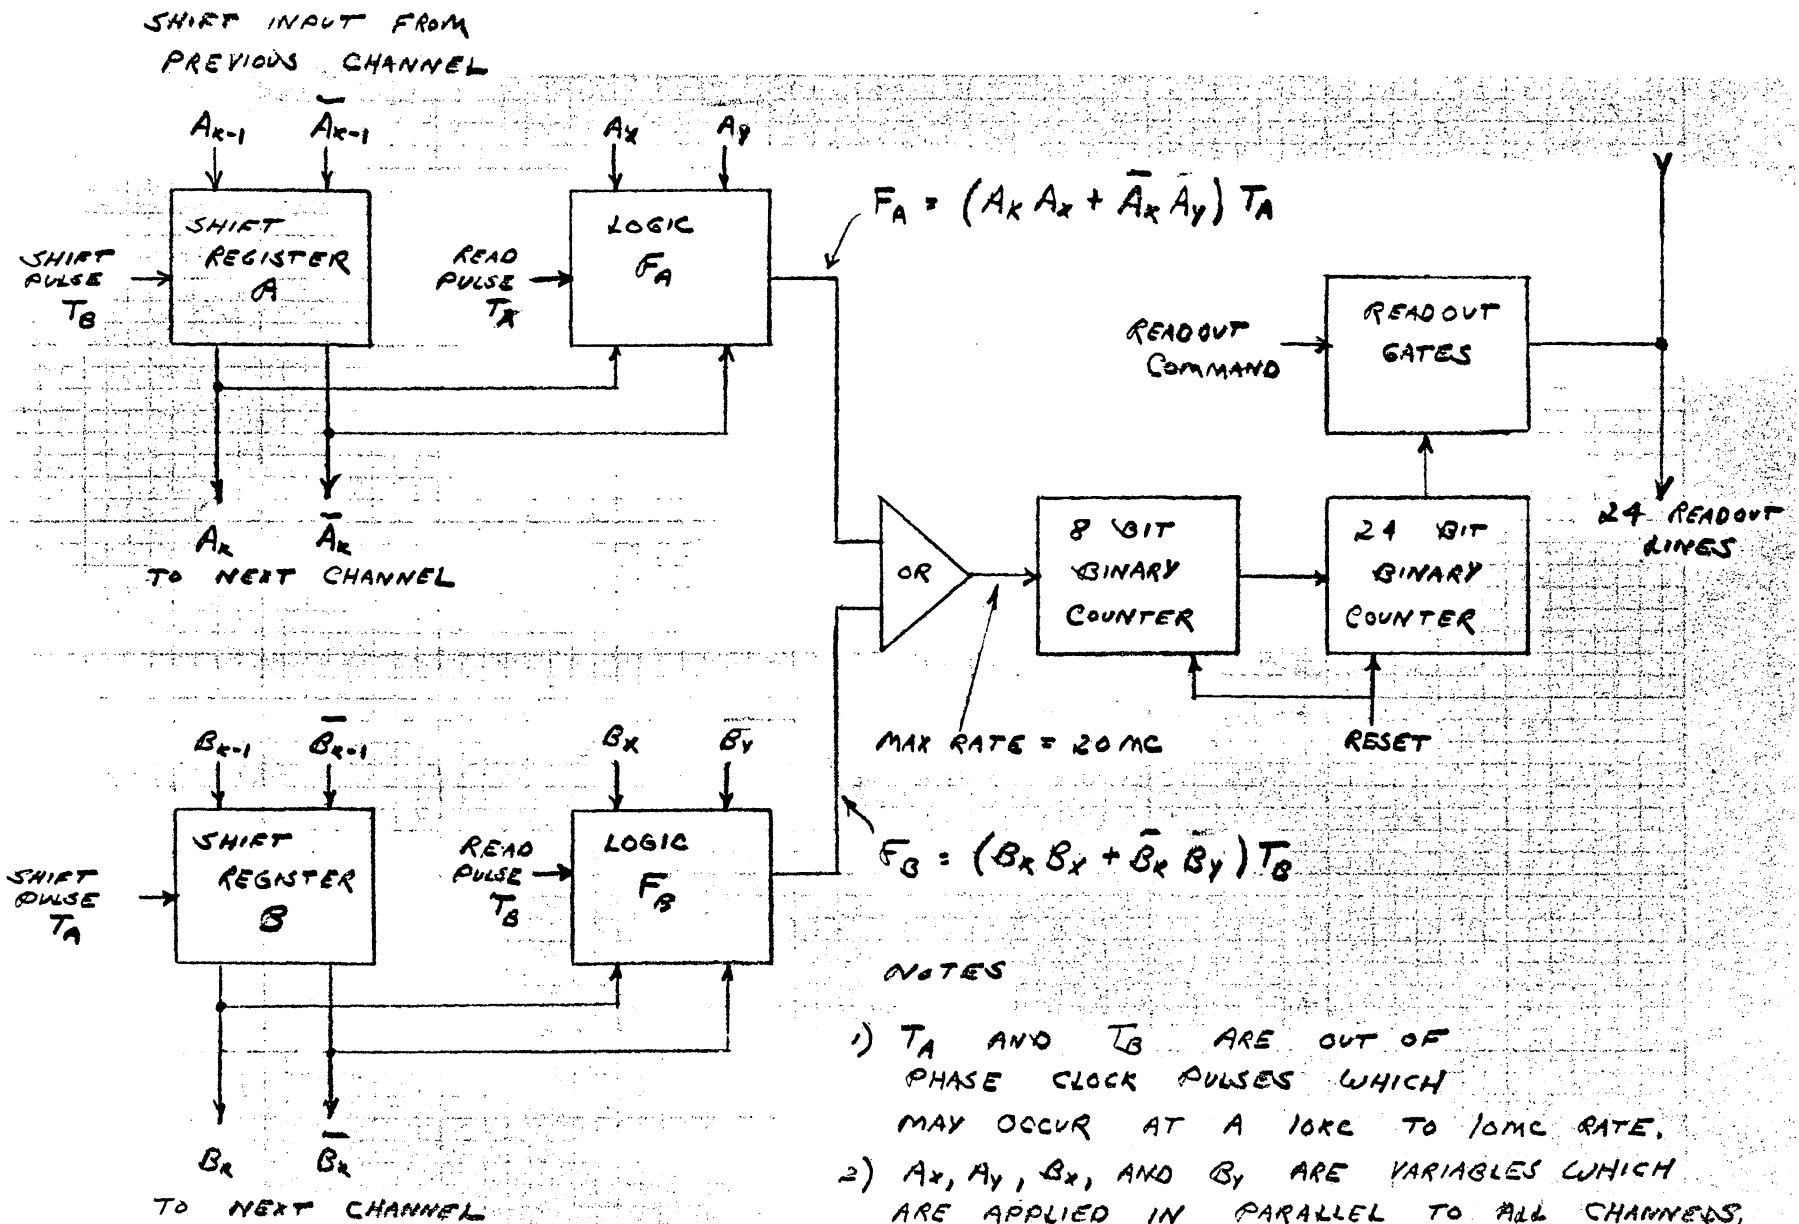 SHIFT INPUT FROM
PREVIOUS CHANNEL
A̅ₖ₋₁
Aₖ₋₁
Aₓ
Aᵧ
SHIFT
REGISTER
A
SHIFT
PULSE
T_B
LOGIC
F_A
READ
PULSE
T_A
F_A = (A_K A_X + A̅_K A̅_Y) T_A
READOUT
COMMAND
READOUT
GATES
24 READOUT
LINES
A_K
A̅_K
TO NEXT CHANNEL
OR
8 BIT
BINARY
COUNTER
24 BIT
BINARY
COUNTER
MAX RATE = 20 MC
RESET
B_K-1
B̅_K-1
B_X
B̅_Y
SHIFT
REGISTER
B
SHIFT
PULSE
T_A
LOGIC
F_B
READ
PULSE
T_B
F_B = (B_K B_X + B̅_K B̅_Y) T_B
B_K
B̅_K
TO NEXT CHANNEL
NOTES
1) T_A AND T_B ARE OUT OF
PHASE CLOCK PULSES WHICH
MAY OCCUR AT A 10KC TO 10MC RATE.
2) A_X, A_Y, B_X, AND B_Y ARE VARIABLES WHICH
ARE APPLIED IN PARALLEL TO ALL CHANNELS.